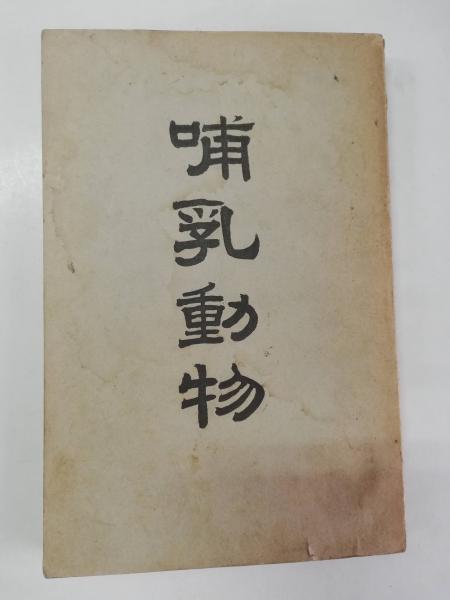 哺乳動物